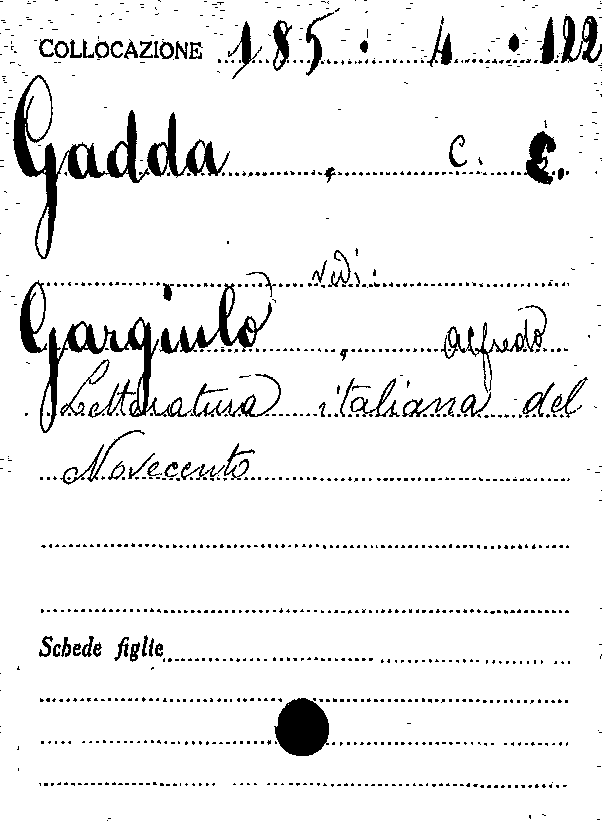 COLLOCAZIONE 185 . 4 . 122
Gadda , C. E.
vedi:
Gargiulo , Alfredo
Letteratura italiana del
Novecento
Schede figlie